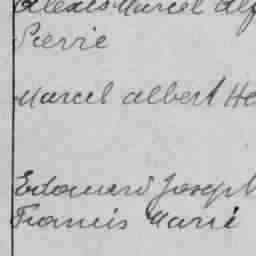 Alexis Marcel Alf
Pierre
Marcel Albert He
Edouard Joseph
Francis Marie